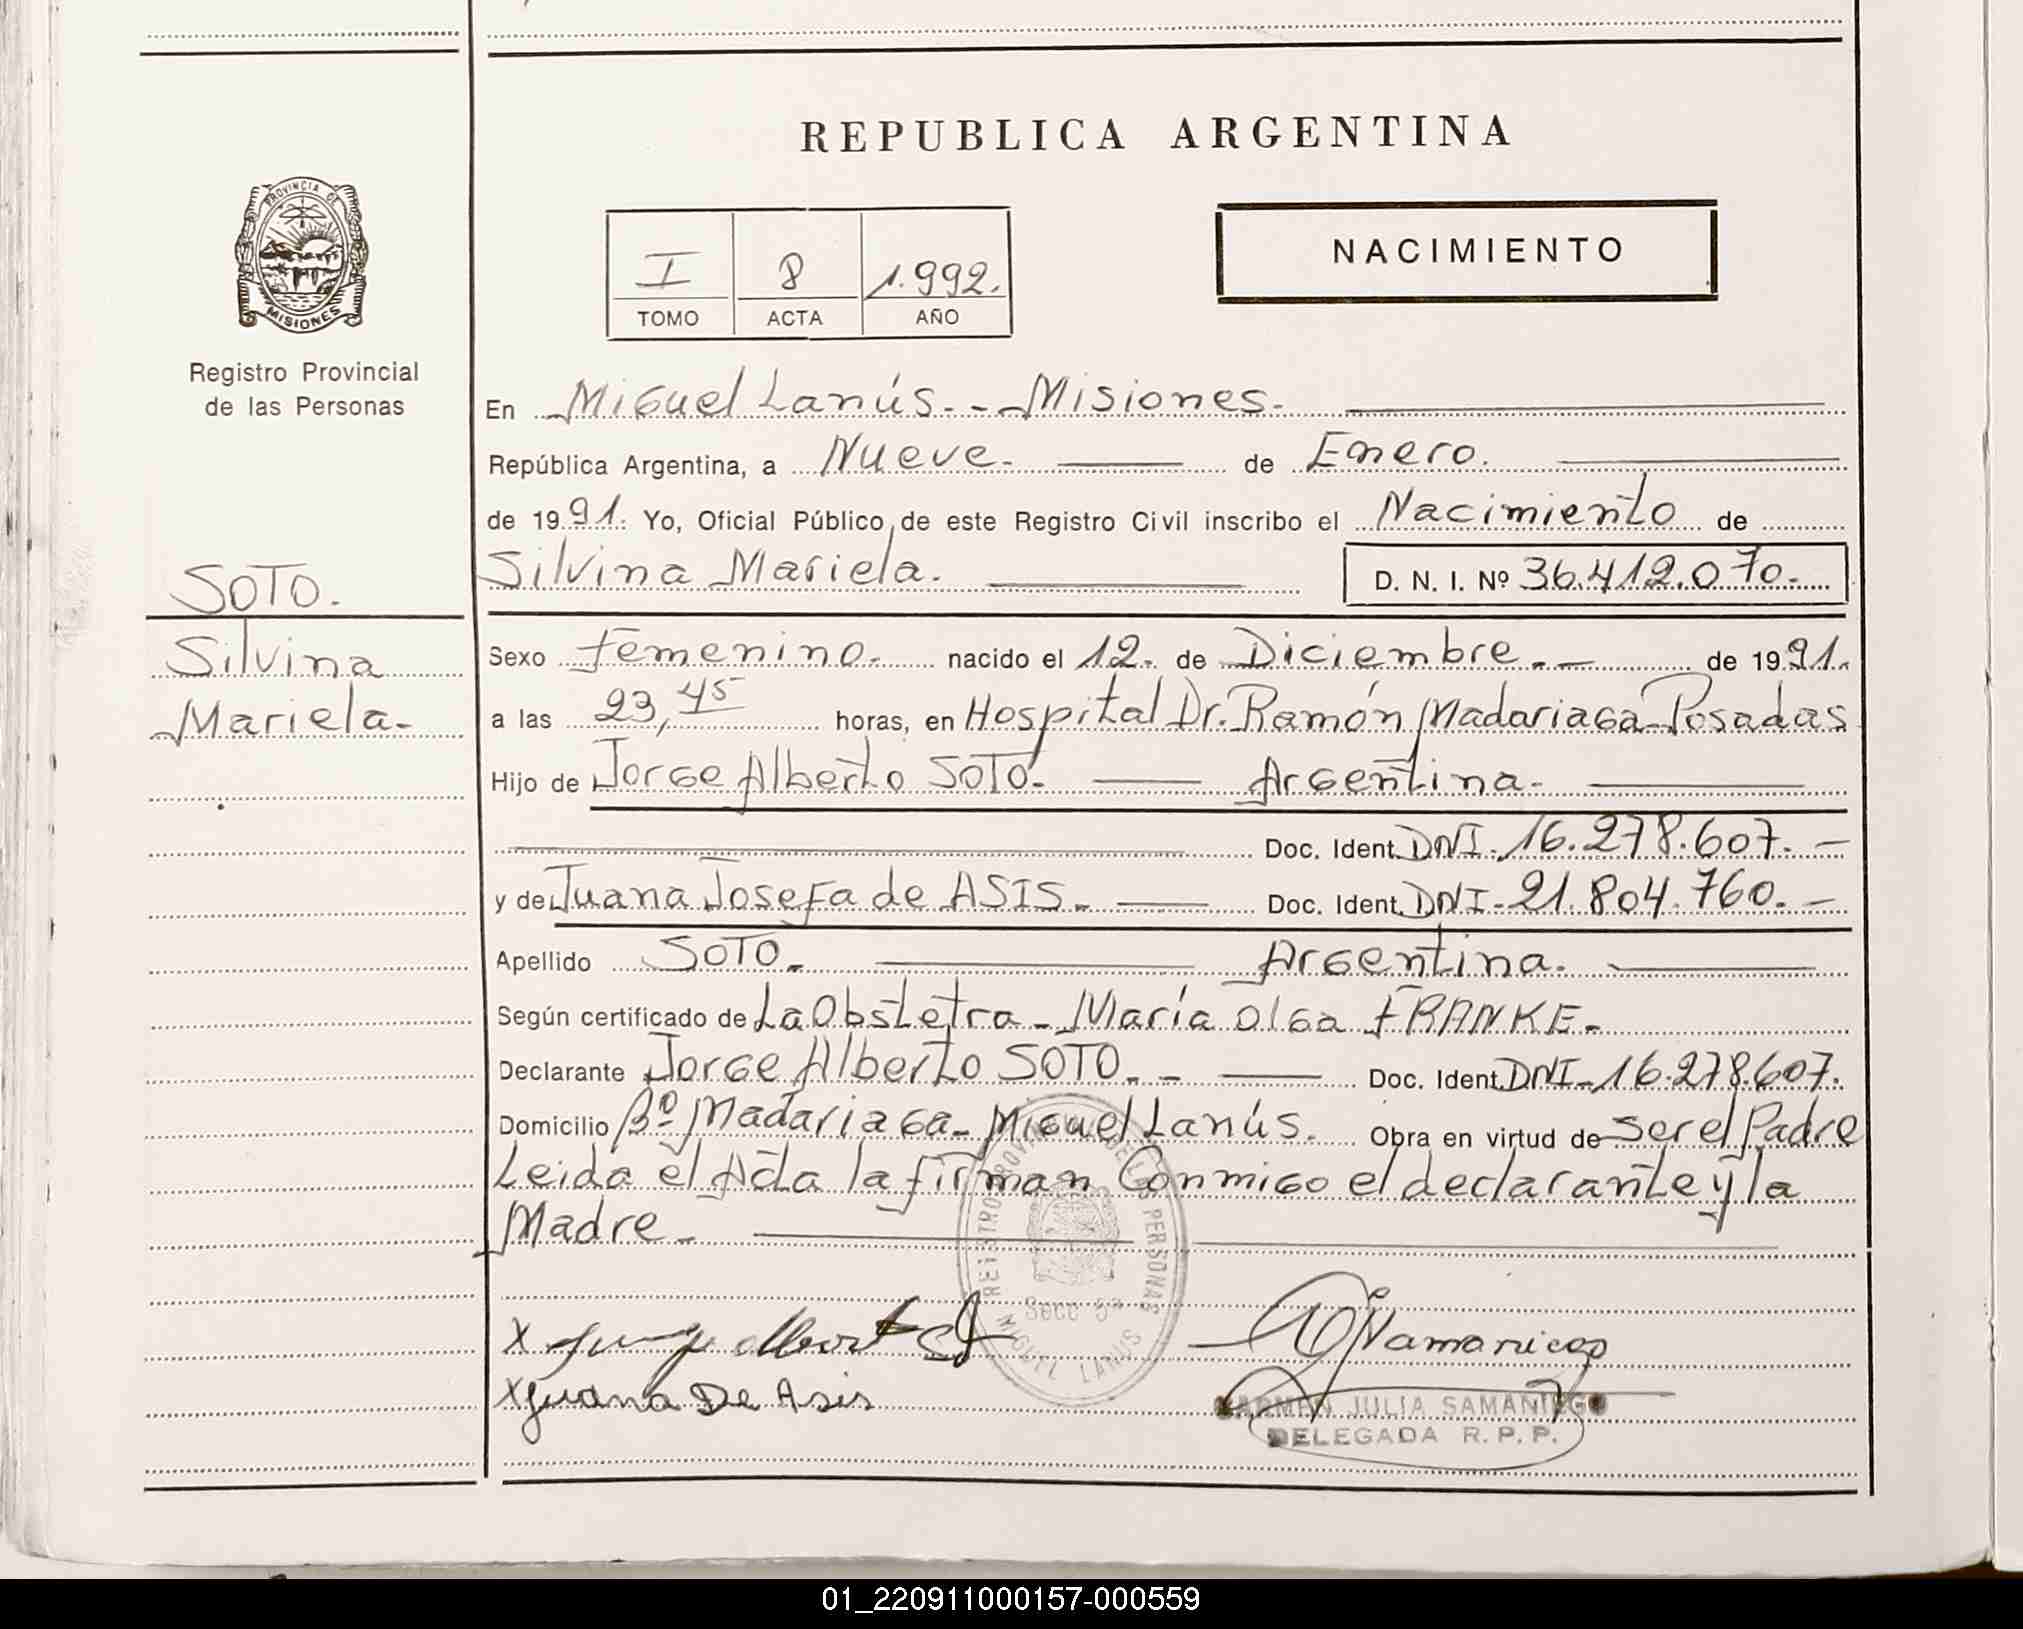 REPUBLICA ARGENTINA
PROVINCIA DE
MISIONES
Registro Provincial
de las Personas
I 8 1.992.
TOMO ACTA AÑO
NACIMIENTO
En Miguel Lanús. - Misiones.
República Argentina, a Nueve. de Enero.
de 1991. Yo, Oficial Público de este Registro Civil inscribo el Nacimiento de
Silvina Mariela. D. N. I. Nº 36.412.070.
SOTO.
Silvina
Mariela.
Sexo Femenino. nacido el 12. de Diciembre. de 1991.
a las 23,45 horas, en Hospital Dr. Ramón Madariaga Posadas
Hijo de Jorge Alberto SOTO. Argentina.
Doc. Ident. DNI. 16.278.607.
y de Juana Josefa de ASIS. Doc. Ident. DNI. 21.804.760.
Apellido SOTO. Argentina.
Según certificado de La Obstetra - María Olga FRANKE.
Declarante Jorge Alberto SOTO. Doc. Ident. DNI. 16.278.607.
Domicilio Bº Madariaga - Miguel Lanús. Obra en virtud de ser el Padre
Leida el Acta la firman Conmigo el declarante y la
Madre.
REGISTRO PROVINCIAL DE LAS PERSONAS
Secc 5ª
MIGUEL LANUS
X Juana De Asis
CARMEN JULIA SAMANIEGO
DELEGADA R. P. P.
01_220911000157-000559